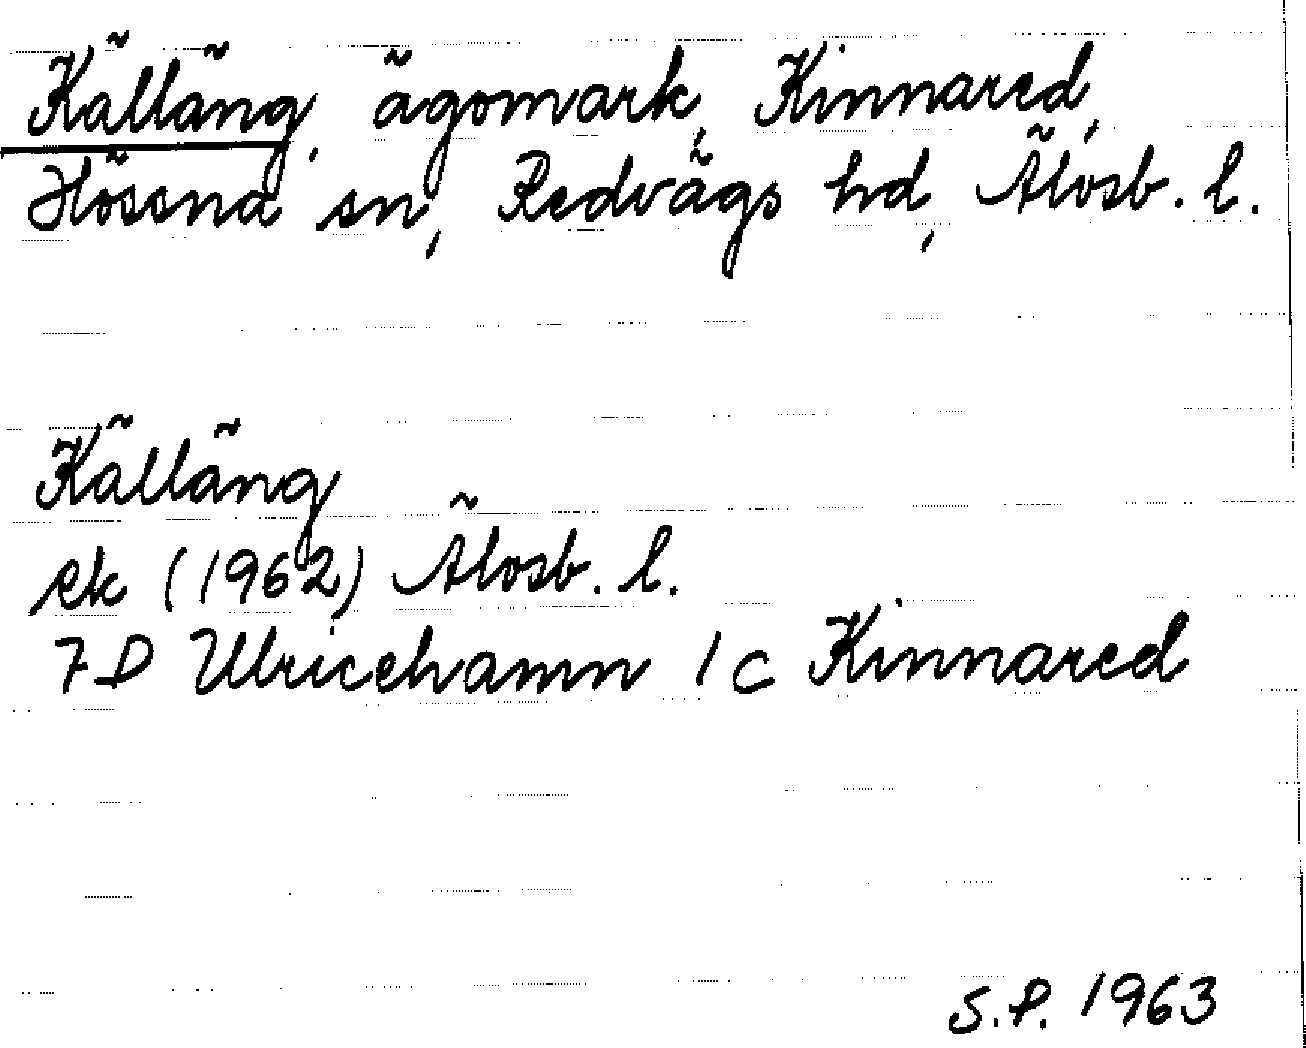 Källäng, ägomark, Kinnared,
Hössna sn, Redvägs hd, Älvsb. l.
Källäng
ek (1962) Älvsb. l.
7D Ulricehamn 1c Kinnared
S.P. 1963